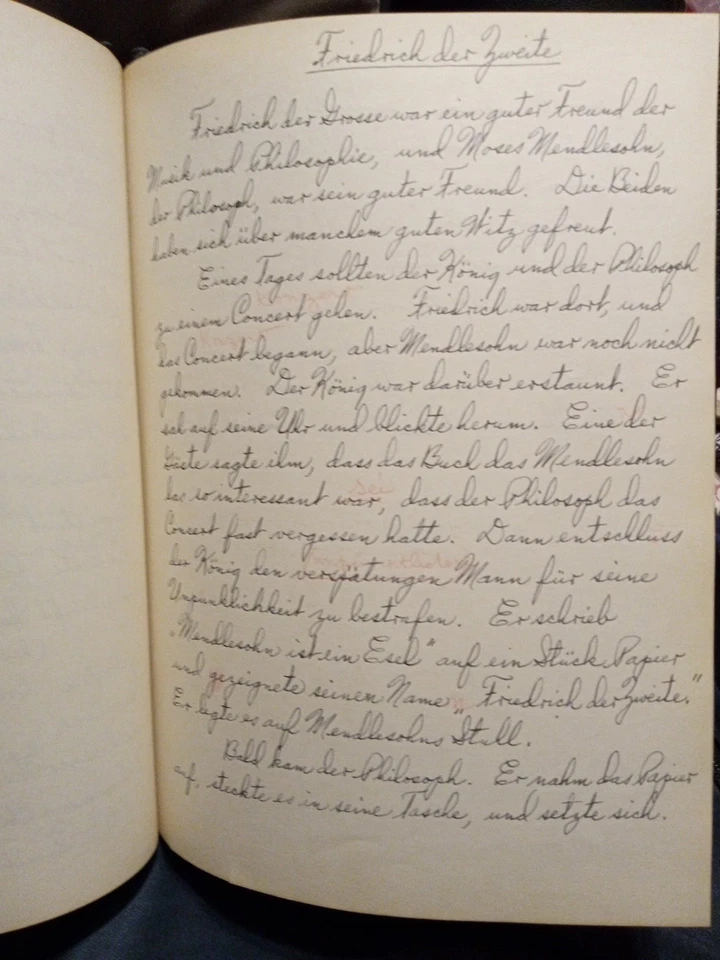 Friedrich der Zweite
Friedrich der Grosse war ein guter Freund der
Musik und Philosophie, und Moses Mendlesohn,
der Philosoph, war sein guter Freund. Die Beiden
haben sich über manchem guten Witz gefreut.
Eines Tages sollten der König und der Philosoph
zu einem Concert gehen. Friedrich war dort, und
das Concert begann, aber Mendlesohn war noch nicht
gekommen. Der König war darüber erstaunt. Er
sah auf seine Uhr und blickte herum. Eine der
Gäste sagte ihm, dass das Buch das Mendlesohn
las so interessant war, dass der Philosoph das
sei
Concert fast vergessen hatte. Dann entschluss
der König den verspätungen Mann für seine
Unpunklichkeit zu bestrafen. Er schrieb
„Mendlesohn ist ein Esel“ auf ein Stück Papier
und gezeignete seinen Name „Friedrich der Zweite.“
Er legte es auf Mendlesohns Stull.
Bald kam der Philosoph. Er nahm das Papier
auf, steckte es in seine Tasche, und setzte sich.